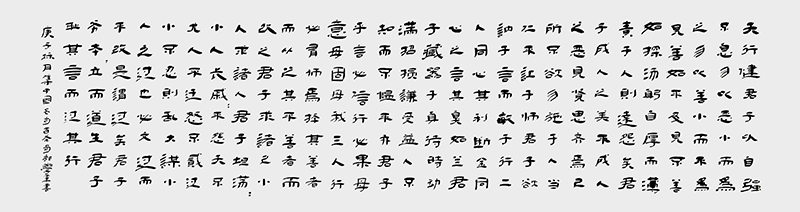 天行健君子以自強
不息勿以惡小而為
之勿以善小而不為
見善如不及見不善
如探湯躬自厚而薄
責于人則遠怨矣君
子成人之美不成人
之惡見賢思齊焉己
所不欲勿施于人當
仁不讓于師君子
訥于言而敏于行二
人同心其利斷金同
心之言其臭如蘭君
子藏器于身待時動
滿招損謙受益人不
知而不慍不亦君
子言必信行必果毋
意毋固毋我三人行
必有我師焉擇其善者
而從之其不善者而
改之君子求諸己小
人求諸人君子坦蕩
小人長戚戚不怨天
不尤人不遷怒不貳過
小不忍則亂大謀小
人之過也必文過而
不改是謂過矣君子
務本本立而道生君子
恥其言而過其行
庚子秋月集中國